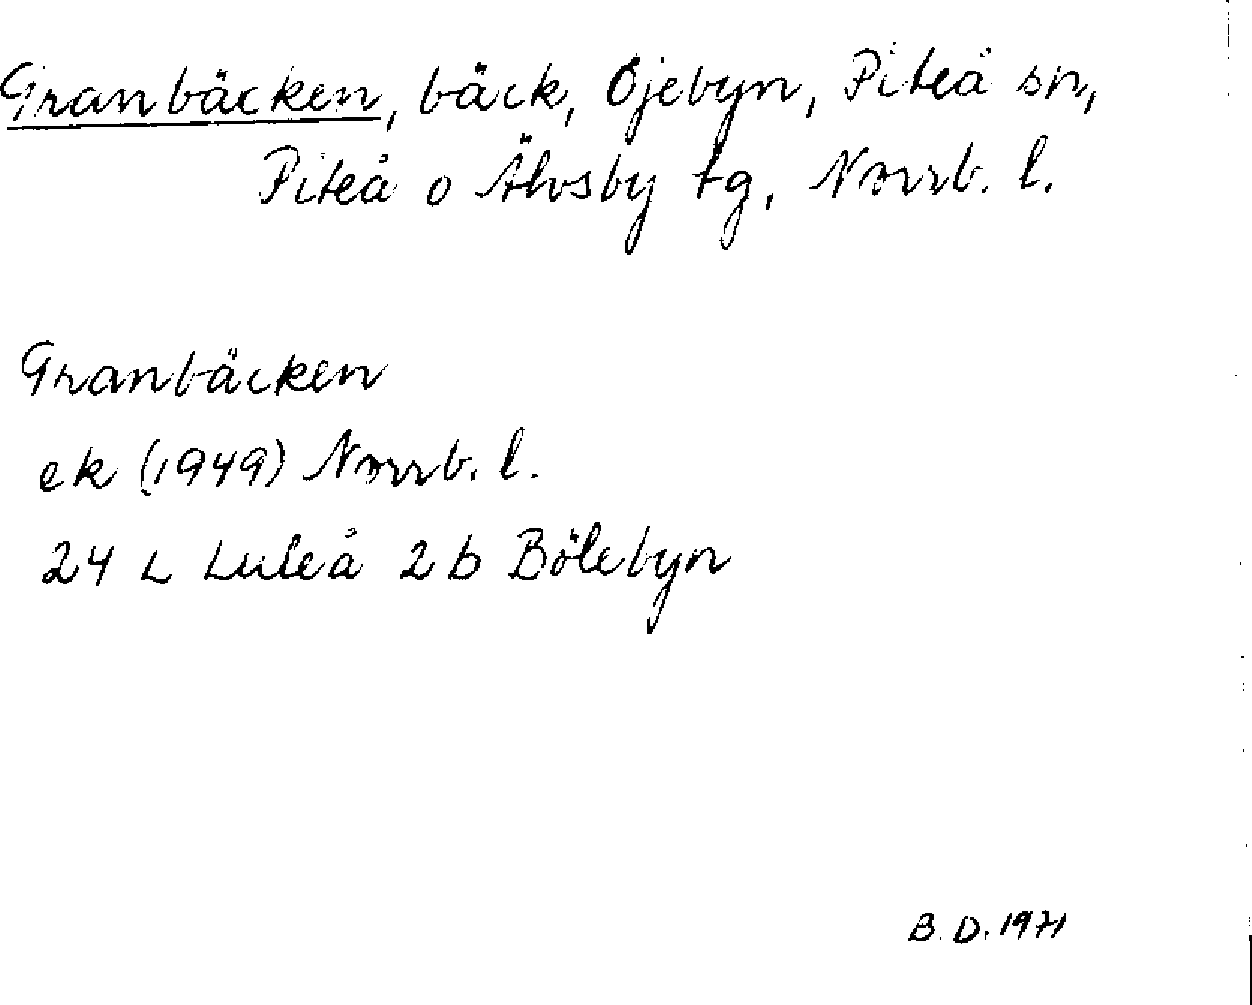 Granbäcken, bäck, Öjebyn, Piteå sn,
Piteå o Älvsby tg, Norrb. l.
Granbäcken
ek (1949) Norrb. l.
24 L Luleå 2b Bölebyn
B.D. 1971